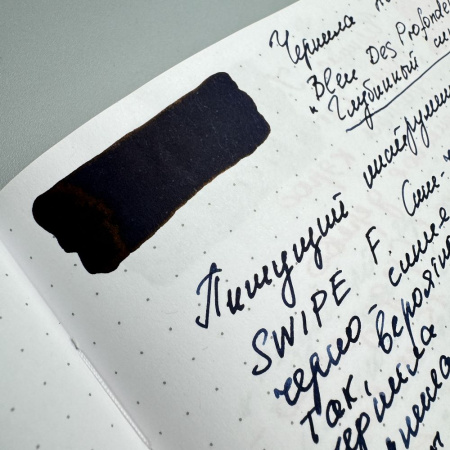 Чернила
Bleu Des Profonde
"Глубинный си
Пишущий инструмент
SWIPE F Сине-ч
черно-синие
Так, вероятн
чернила